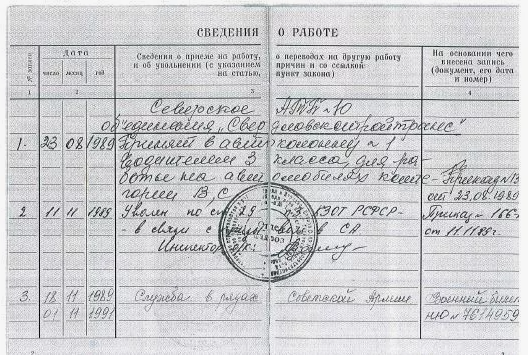 СВЕДЕНИЯ О РАБОТЕ
№ записи
Дата
число месяц год
Сведения о приеме на работу, о переводах на другую работу
и об увольнении (с указанием причин и со ссылкой
на статью, пункт закона)
На основании чего
внесена запись
(документ, его дата
и номер)
1 2 3 4
Северское АТП №10
объединения "Свердловскстройтранс"
1. 23 08 1989 Принят в автоколонну №1
водителем 3 класса, для ра-
боты на автомобилях кате- Приказ №
гории В, С от 23.08.1989
2. 11 11 1989 Уволен по ст. 29 КЗОТ РСФСР - Приказ 166
- в связи с в СА от 11.11.89г.
Инспектор о/к
3. 18 11 1989 Служба в рядах Советской Армии Военный билет
01 11 1991 НЮ № 7614959